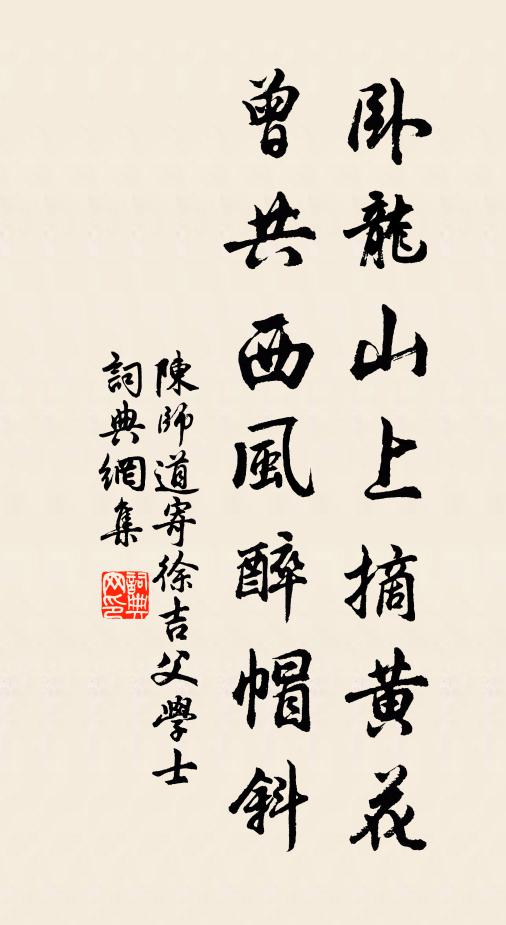 臥龍山上摘黄花
曾共西風醉帽斜
陳師道寄徐吉父學士
詞典網集
詞典
网印